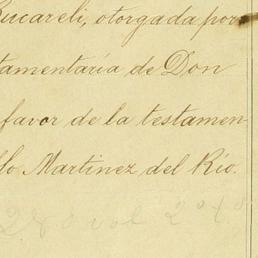 Bucareli, otorgada por
tamentaría de Don
favor de la testamen-
lo Martinez del Rio.